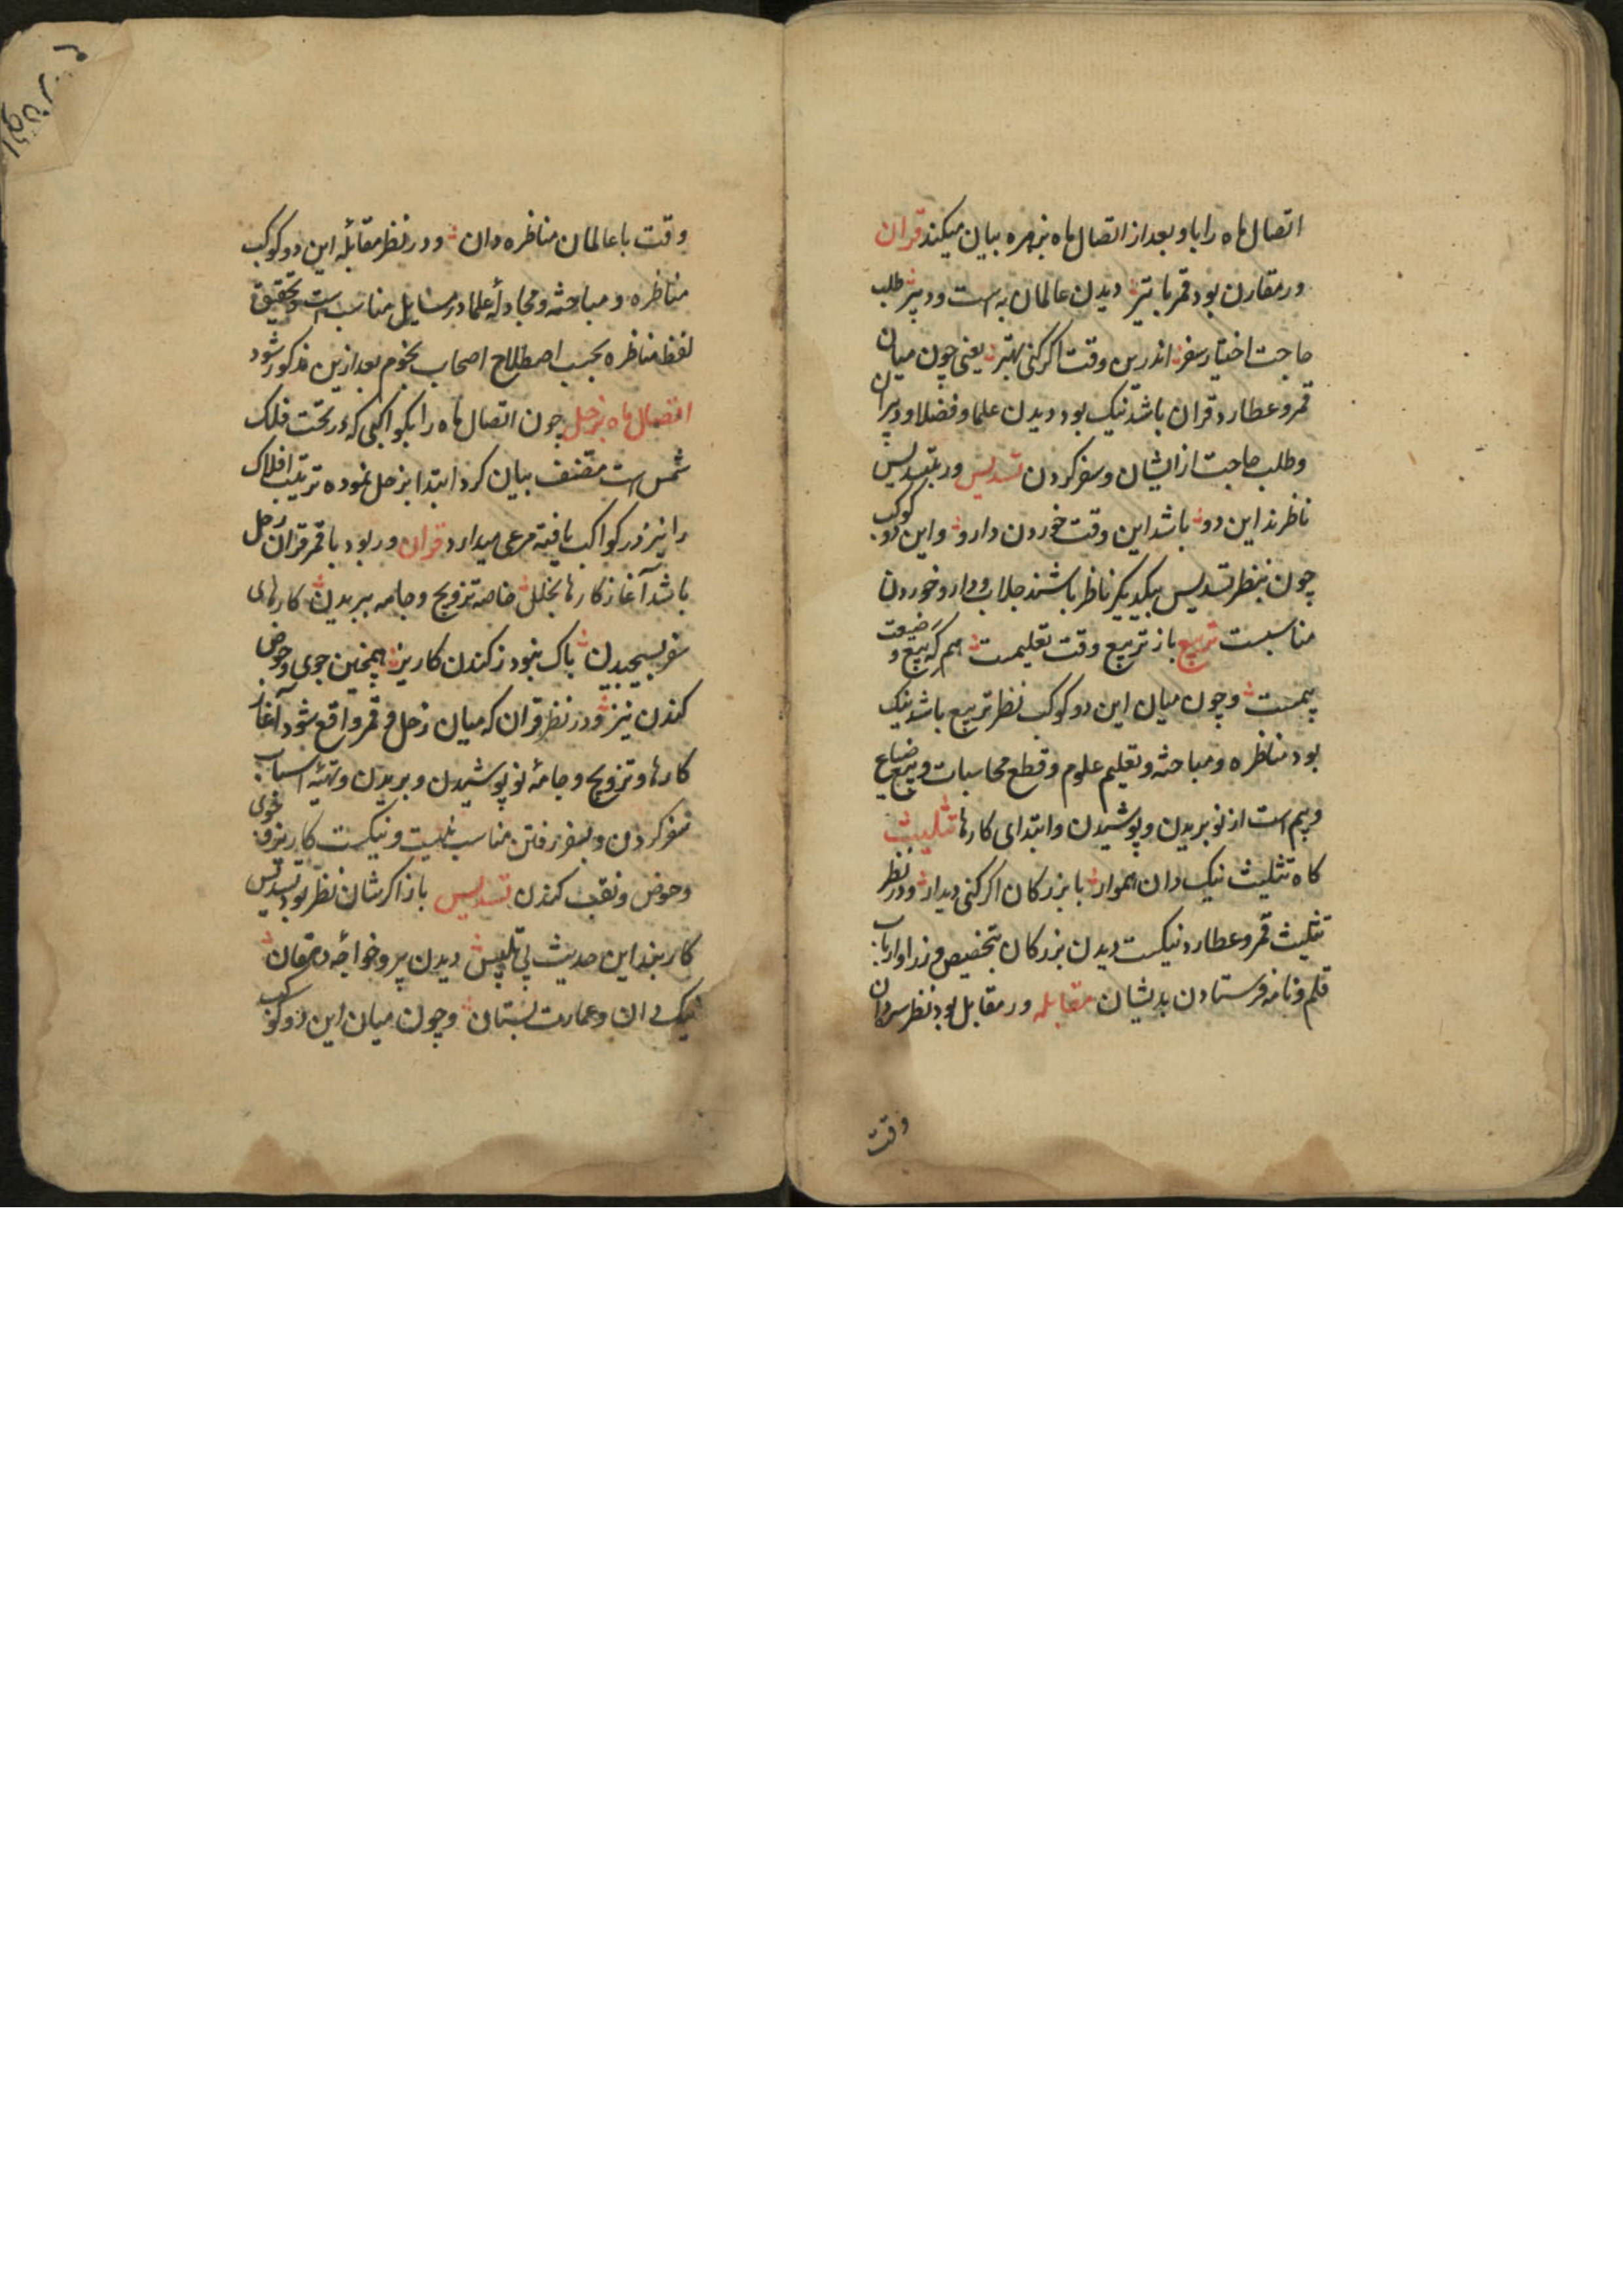 اتصال ماه را باو بعد از اتصال ماه بزهره بیان میکند قران
ور مقارن بود قمر با تیر دیدن عالمان به است و دبیر طلب
حاجت اختیار سفر اندرین وقت اگر کنی بهتر یعنی چون میان
قمر و عطارد قران باشد نیک بود دیدن علما و فضلا و دبیران
و طلب حاجت از ایشان و سفر کردن تسدیس ور بتسدیس
ناظرند این دو باشد این وقت خوردن دارو و این دو کوکب
چون بنظر تسدیس بیکدیگر ناظر باشند جلاب و دارو خوردن
مناسبست تربیع باز تربیع وقت تعلیمست هم گه بیع و ضیعت
بیمست و چون میان این دو کوکب نظر تربیع باشد نیک
بود مناظره و مباحثه و تعلیم علوم و قطع محاسبات و بیع ضیاع
و بیم است از نو بریدن و پوشیدن و ابتدای کارها تثلیث
کاه تثلیث نیک دان هموار با بزرکان اگر کنی دیدار و در نظر
تثلیث قمر و عطارد نیکست دیدن بزرکان بتخصیص وزرا و ارباب
قلم و نامه فرستادن بدیشان مقابله ور مقابل بود نظر سر دان
وقت
وقت با عالمان مناظره دان و در نظر مقابلهٔ این دو کوکب
مناظره و مباحثه و مجادلهٔ علما در مسایل مناسب است و تحقیق
لفظ مناظره بحسب اصطلاح اصحاب نجوم بعد ازین مذکور شود
اتصال ماه بزحل چون اتصال ماه را بکواکبی که در تحت فلک
شمس است مصنف بیان کرد ابتدا بزحل نموده ترتیب افلاک
را نیز در کواکب باقیه مرعی میدارد قران ور بود با قمر قران زحل
باشد آغاز کارها بخلل خاصه تزویج و جامه ببریدن کارهای
سفر بسیجیدن باک نبود ز کندن کاریز همچنین جوی و حوض
کندن نیز و در نظر قران که میان زحل و قمر واقع شود آغاز
کارها و تزویج و جامهٔ نو پوشیدن و بریدن و تهیهٔ اسباب
سفر کردن و بسفر رفتن مناسب نیست و نیکست کاریز و جوی
و حوض و نقب کندن تسدیس باز اگر شان نظر بود تسدیس
کار بند این حدیث بی تلبیس دیدن پیر و خواجهٔ دهقان
نیک دان و عمارت بستان و چون میان این دو کوکب